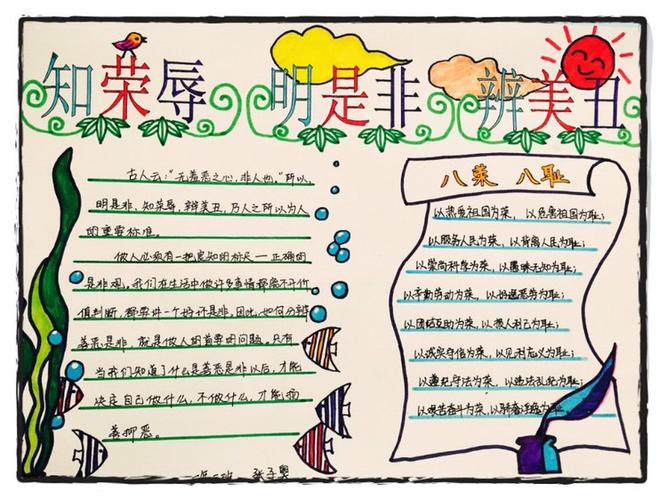 知荣辱 明是非 辨美丑
古人云:“无羞恶之心,非人也。”所以,
明是非、知荣辱、辨美丑,乃人之所以为人
的重要标准。
做人心要有一把良知的标尺——正确的
是非观。我们在生活中做许多事情都离不开价
值判断,都要讲一个好还是非。因此,如何分辨
善恶是非,就是做人的首要的问题,只有
当我们知道了什么是善恶是非以后,才能
决定自己做什么,不做什么,才能扬
善抑恶。
二班 张子奥
八荣 八耻
以热爱祖国为荣,以危害祖国为耻;
以服务人民为荣,以背离人民为耻;
以崇尚科学为荣,以愚昧无知为耻;
以辛勤劳动为荣,以好逸恶劳为耻;
以团结互助为荣,以损人利己为耻;
以诚实守信为荣,以见利忘义为耻;
以遵纪守法为荣,以违法乱纪为耻;
以艰苦奋斗为荣,以骄奢淫逸为耻。